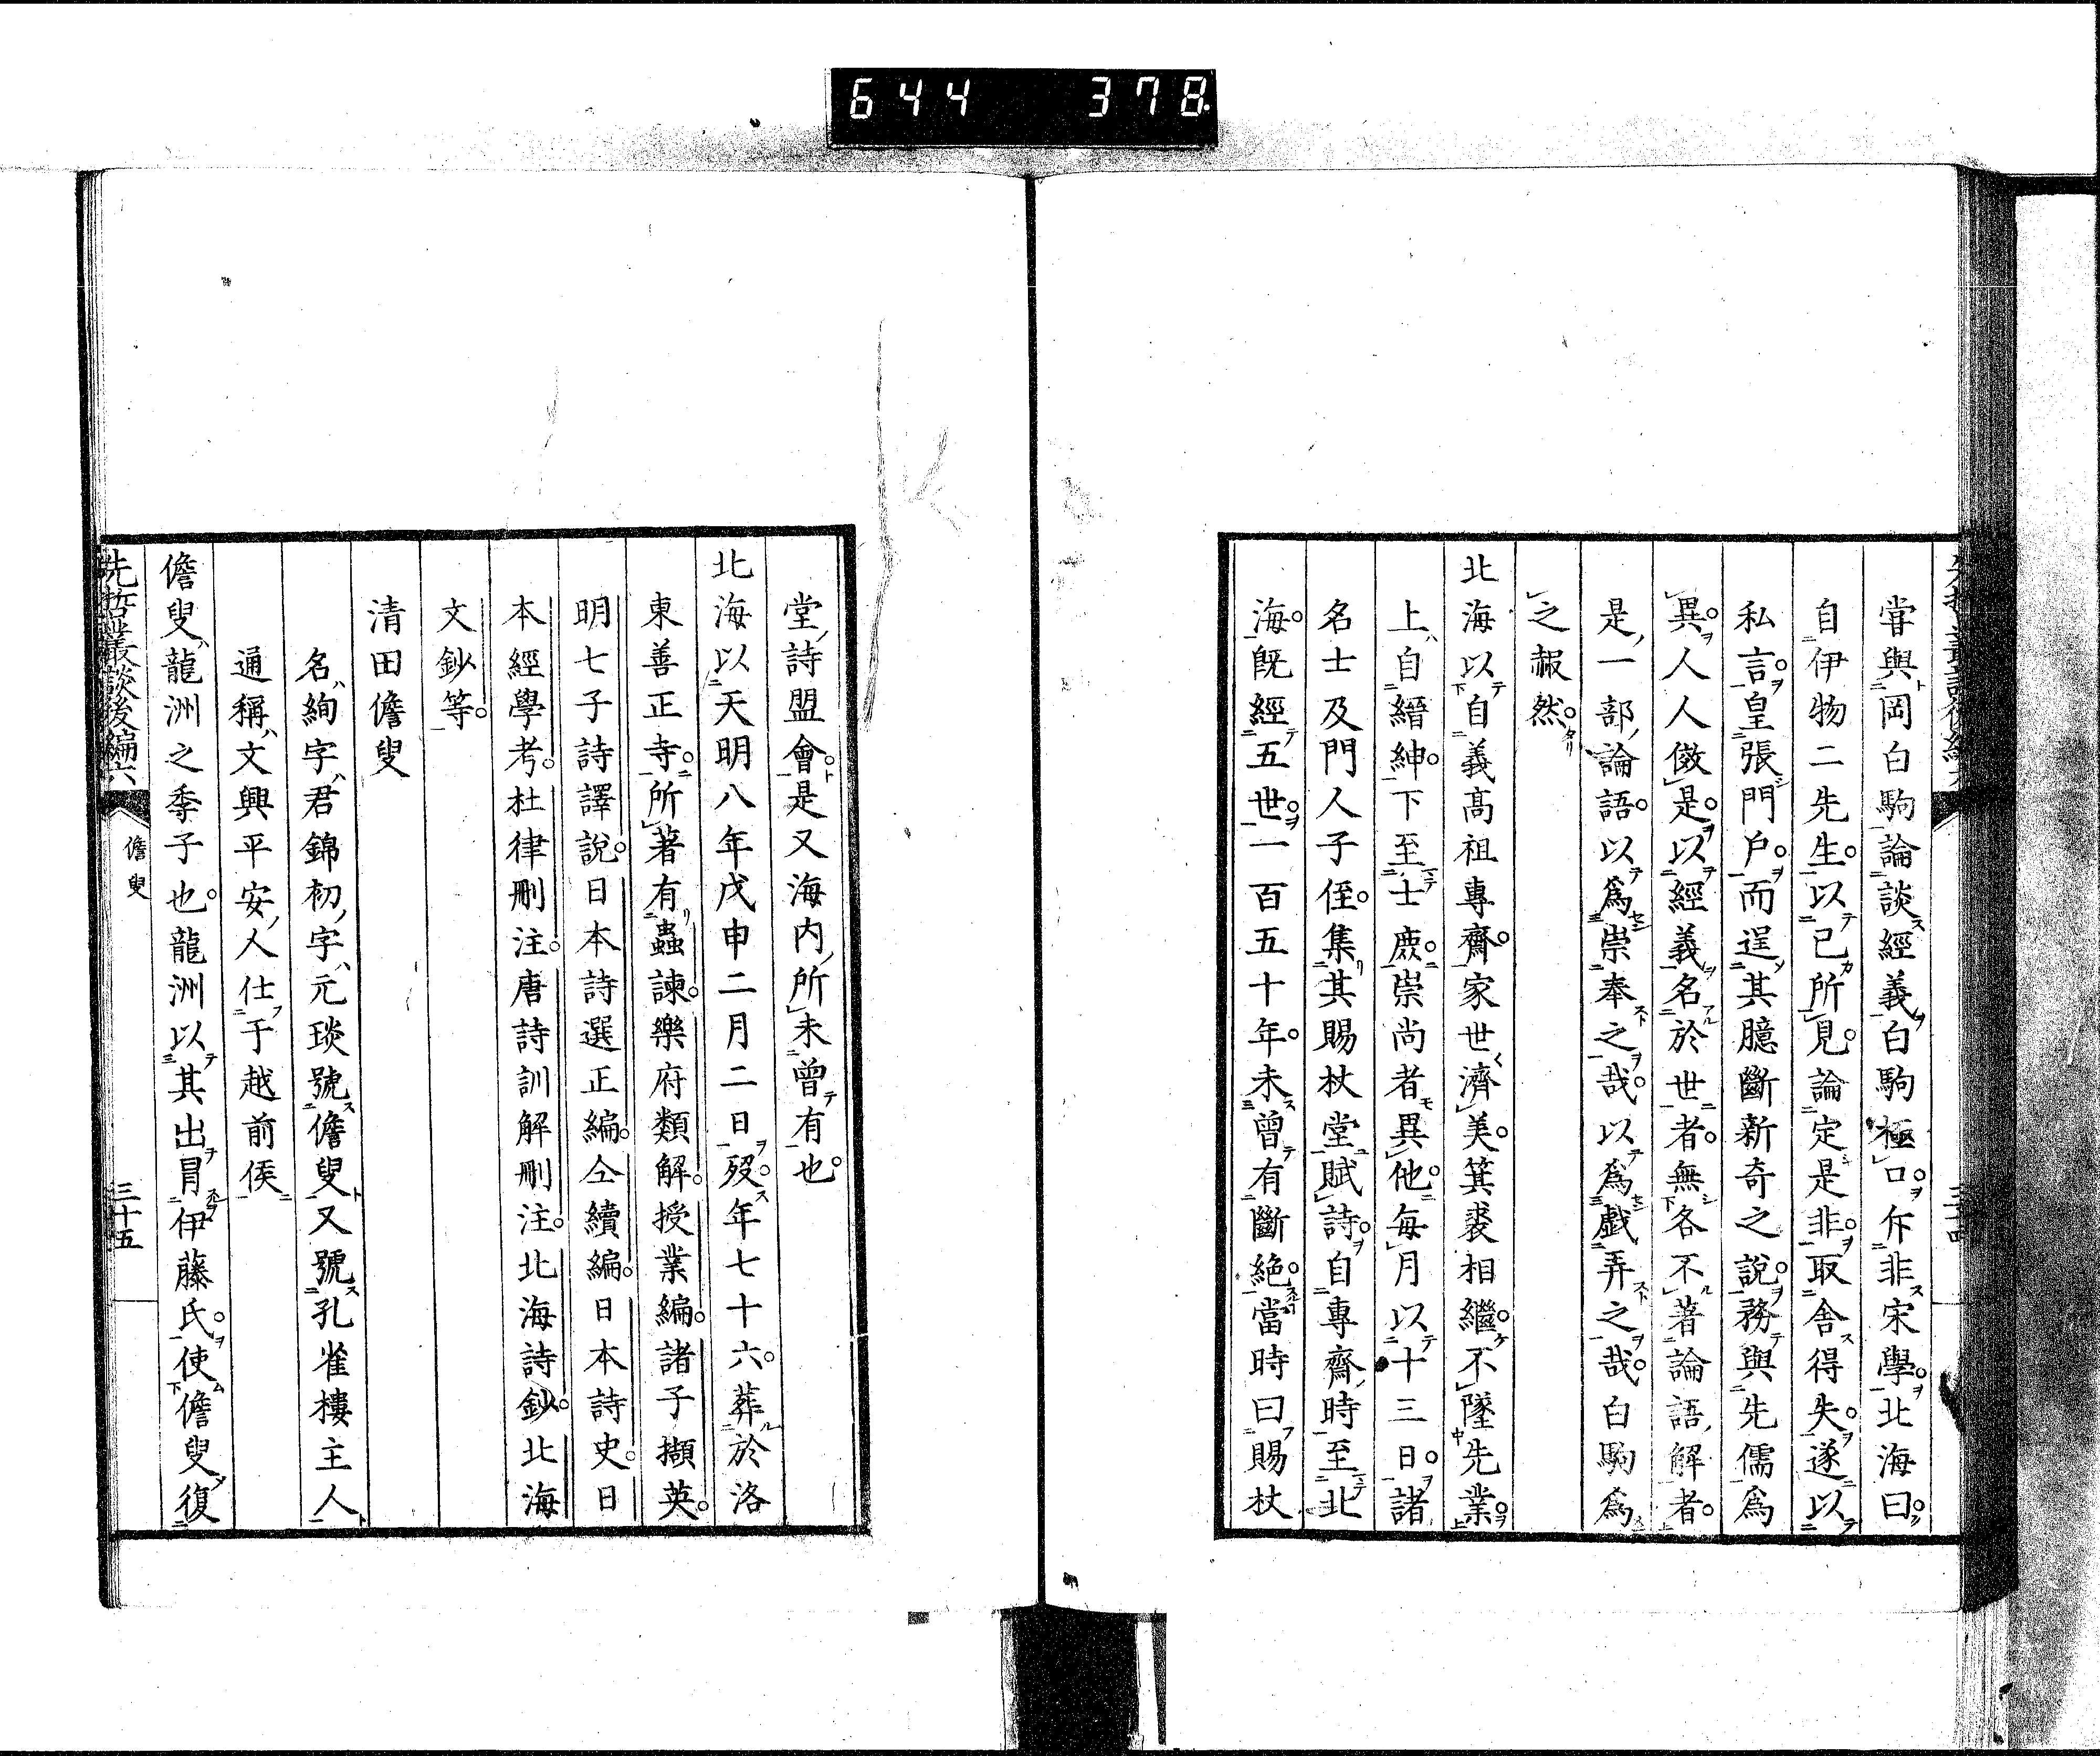 644 378
甞與岡白駒論談經義白駒極口斥非宋學北海曰
自伊物二先生以己所見論定是非取舍得失遂以
私言皇張門戶而逞其臆斷新奇之說務與先儒爲
異人人傚是以經義名於世者無各不著論語解者
是一部論語以爲崇奉之哉以爲戲弄之哉白駒爲
之赧然
北海以自義高祖專齋家世濟美箕裘相繼不墜先業
上自縉紳下至士庶崇尚者異他每月以十三日諸
名士及門人子侄集其賜杖堂賦詩自專齋時至北
海既經五世一百五十年未曾有斷絶當時曰賜杖
堂詩盟會是又海内所未曾有也
北海以天明八年戊申二月二日歿年七十六葬於洛
東善正寺所著有蟲諫樂府類解授業編諸子擷英
明七子詩譯說日本詩選正編仝續編日本詩史日
本經學考杜律刪注唐詩訓解刪注北海詩鈔北海
文鈔等
清田儋叟
名絢字君錦初字元琰號儋叟又號孔雀樓主人
通稱文興平安人仕于越前侯
儋叟龍洲之季子也龍洲以其出冒伊藤氏使儋叟復
先哲叢談後編六 儋叟 三十五